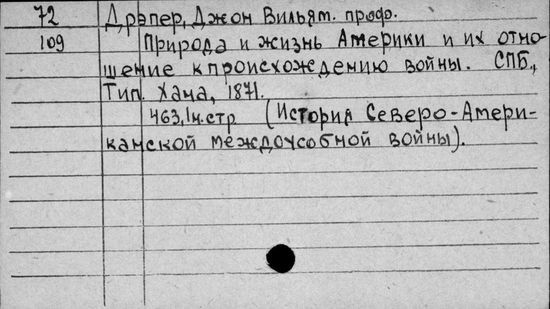 72 Дрэпер, Джон Вильям. проф.
109 Природа и жизнь Америки и их отно-
шение к происхождению войны. СПБ.,
Тип. Хана, 1871.
463, 1н.стр (История Северо-Амери-
канской междоусобной войны).